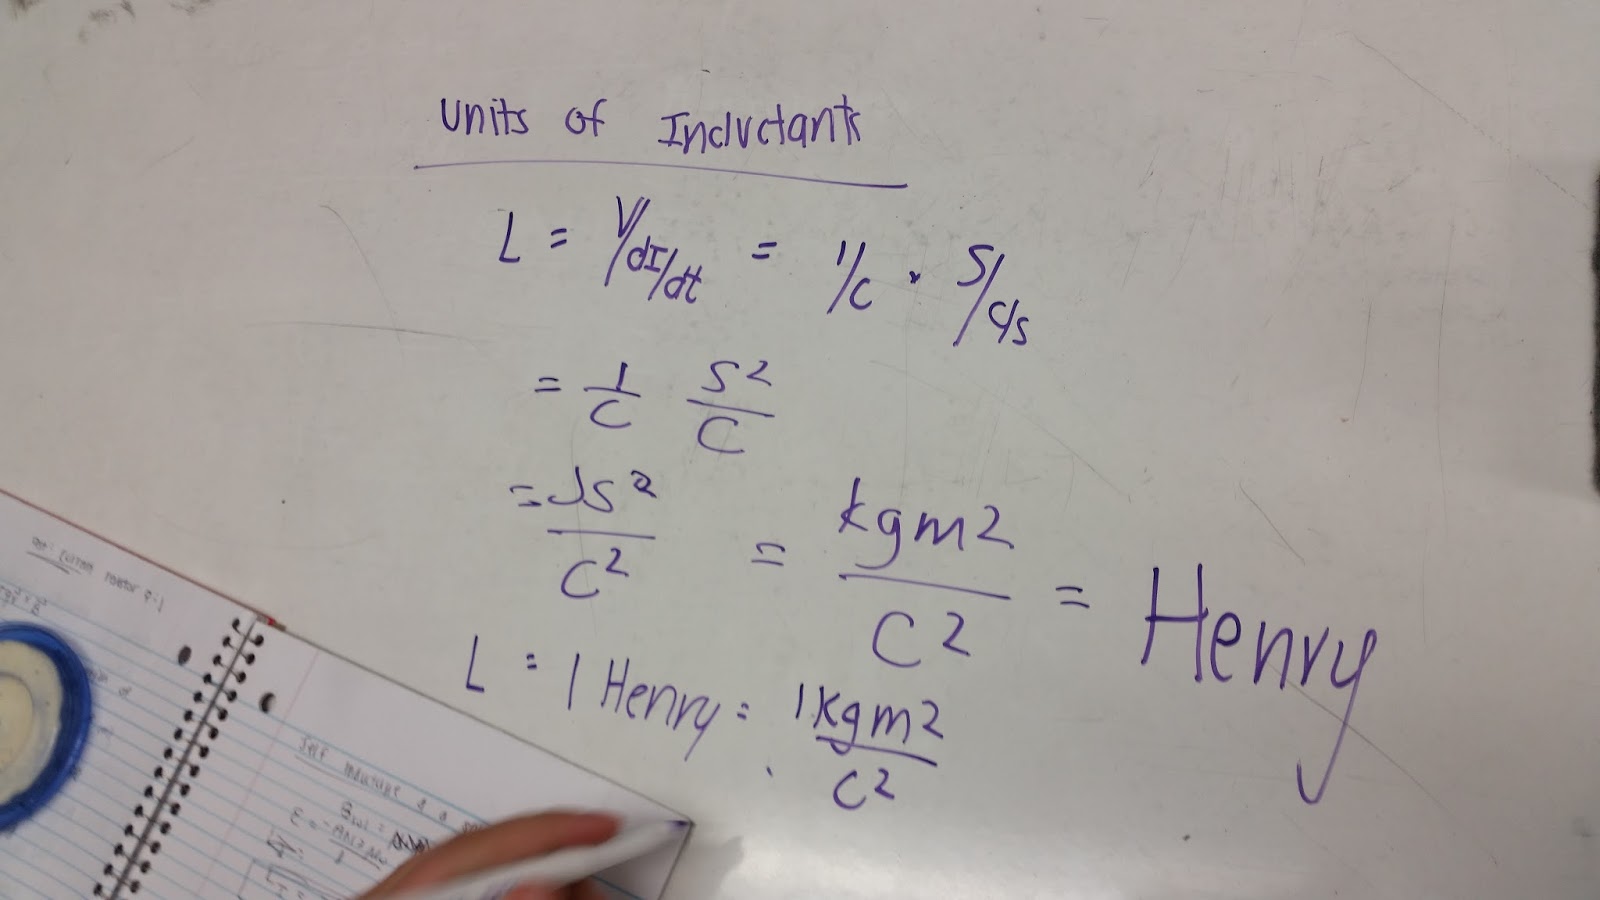 Units of Inductants
L = V/dI/dt = 1/C · S/C/s
= 1/C S²/C
= JS²/C² = kgm2/C2 = Henry
L = 1 Henry = 1kgm2/C2
Self inductance of a